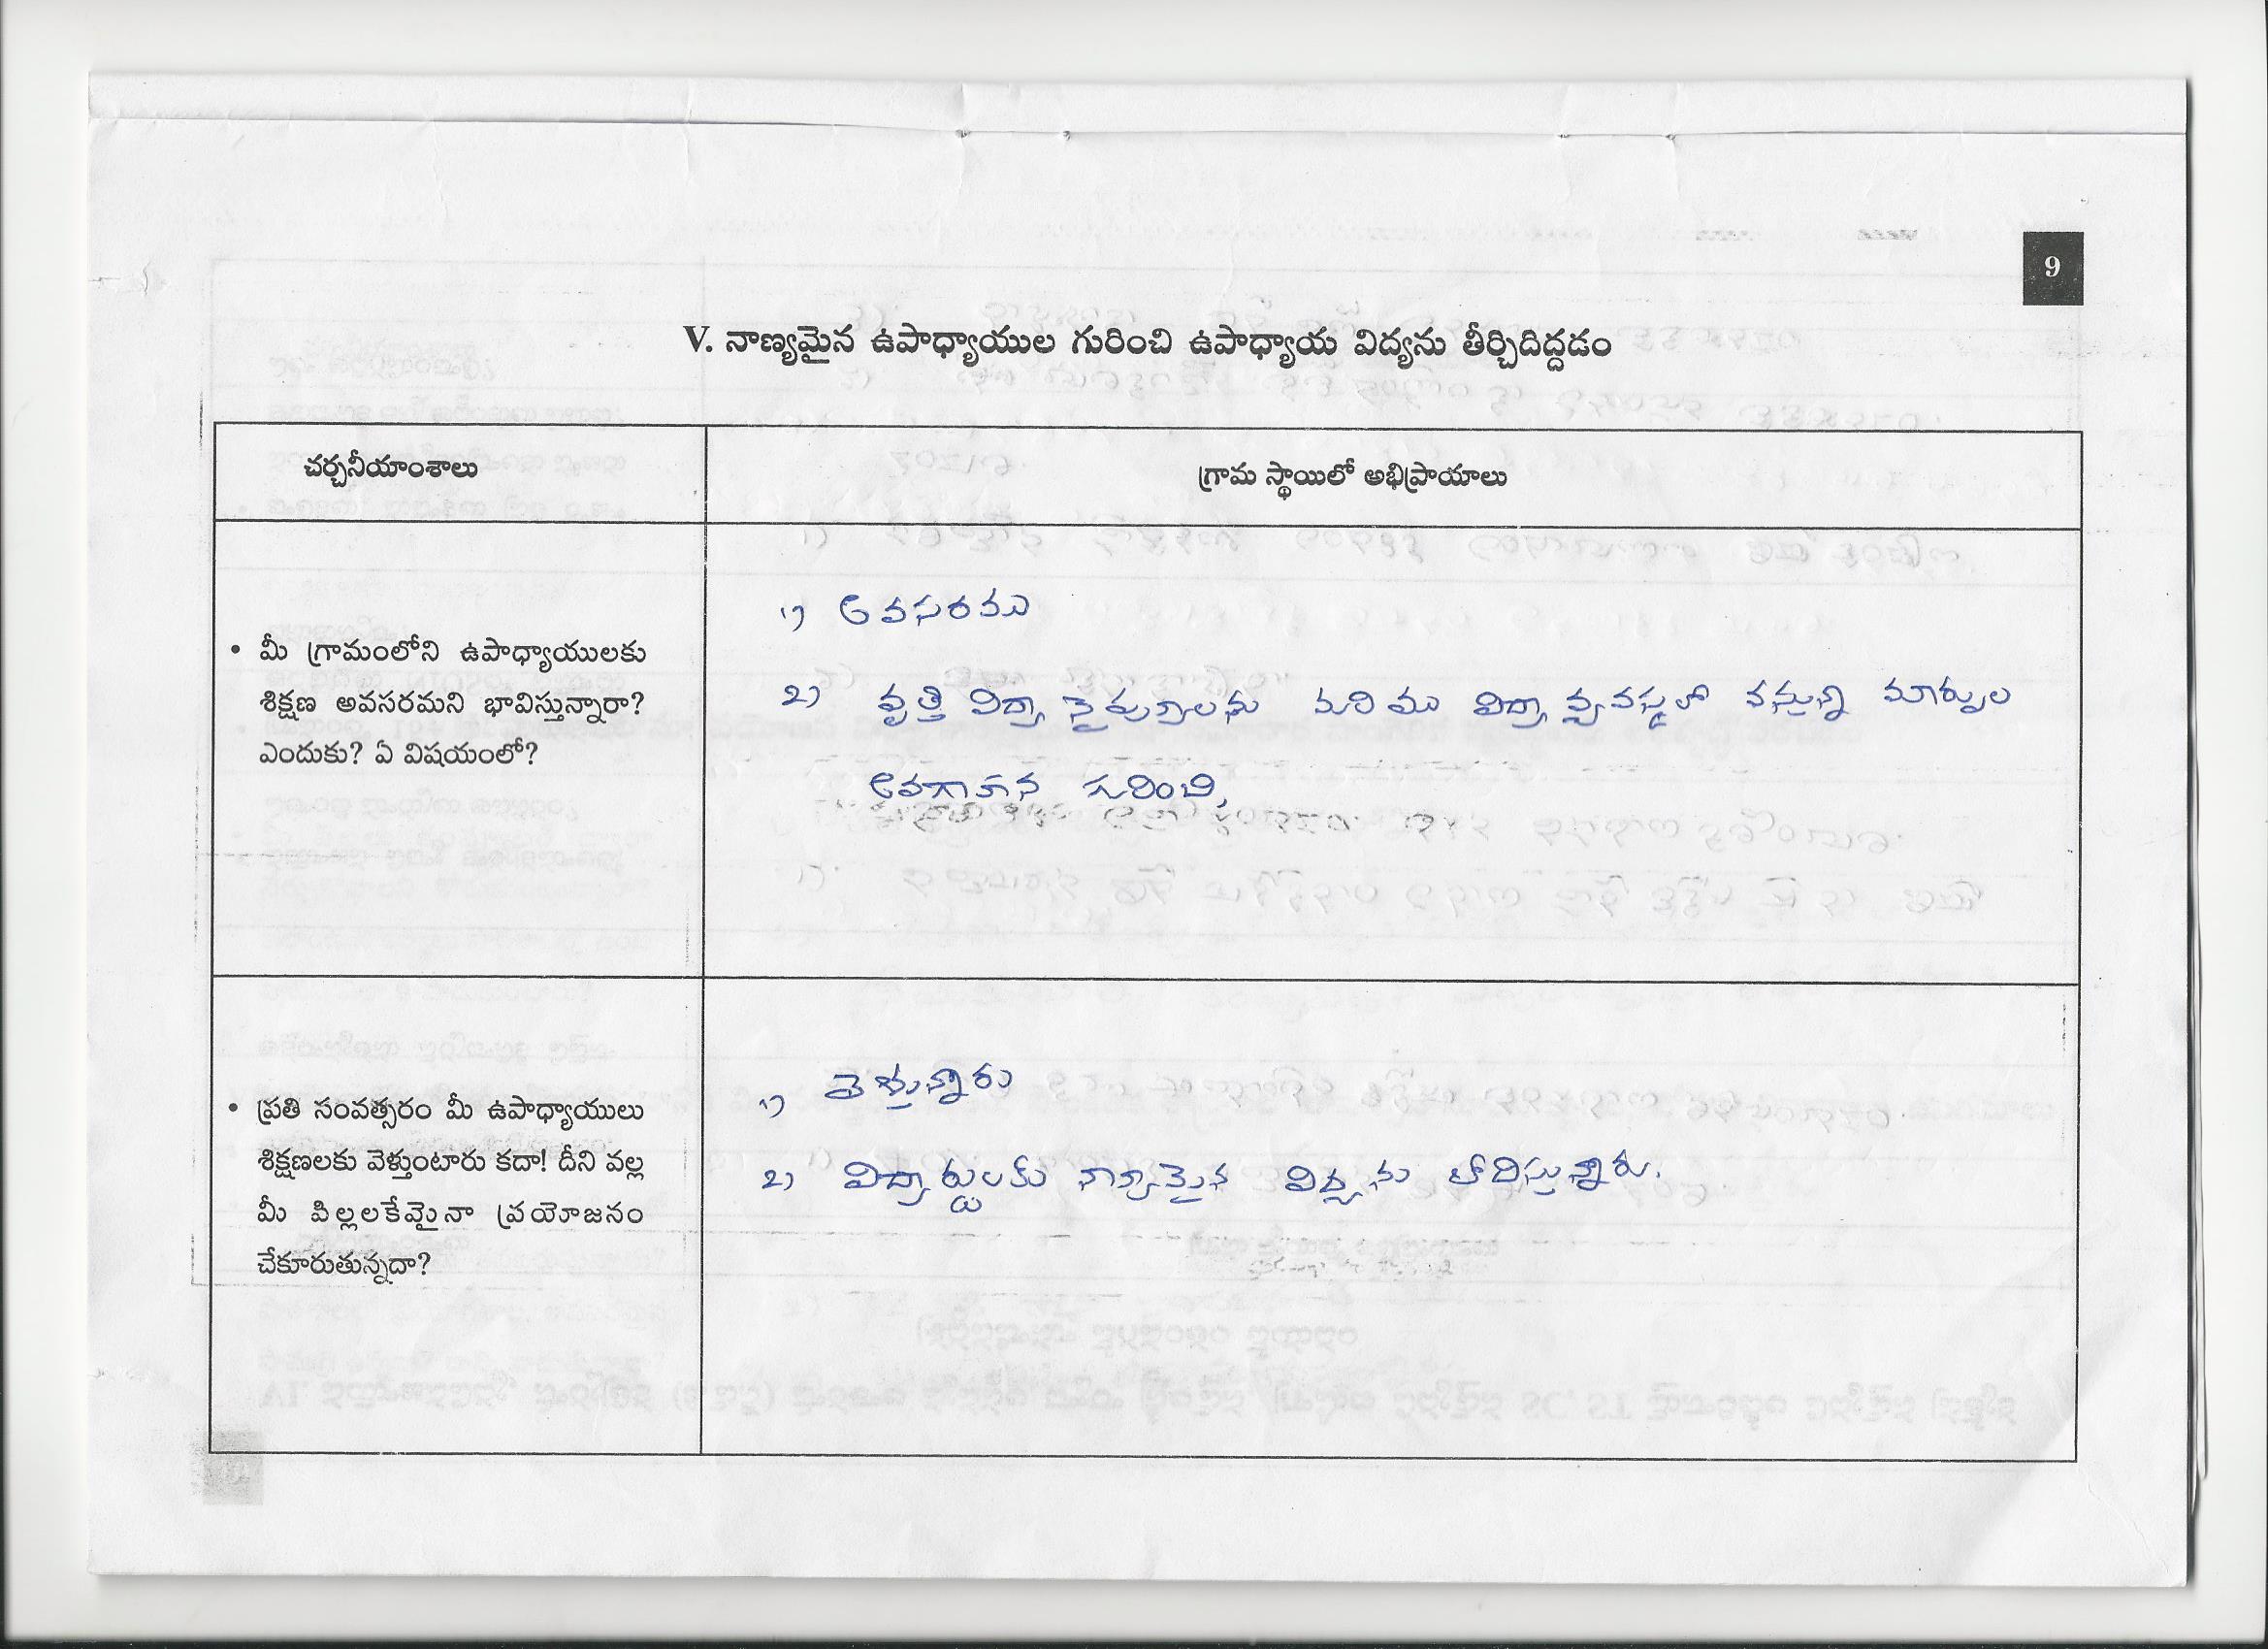 9
V. నాణ్యమైన ఉపాధ్యాయుల గురించి ఉపాధ్యాయ విద్యను తీర్చిదిద్దడం
చర్చనీయాంశాలు
గ్రామ స్థాయిలో అభిప్రాయాలు
• మీ గ్రామంలోని ఉపాధ్యాయులకు
శిక్షణ అవసరమని భావిస్తున్నారా?
ఎందుకు? ఏ విషయంలో?
1) అవసరము
2) వృత్తి విద్యా నైపుణ్యాలను మరియు విద్యా వ్యవస్థలో వస్తున్న మార్పుల
అవగాహన గురించి,
• ప్రతి సంవత్సరం మీ ఉపాధ్యాయులు
శిక్షణలకు వెళ్తుంటారు కదా! దీని వల్ల
మీ పిల్లలకేమైనా ప్రయోజనం
చేకూరుతున్నదా?
1) వెళ్తున్నారు
2) విద్యార్థులకు నాణ్యమైన విద్యను బోధిస్తున్నారు.